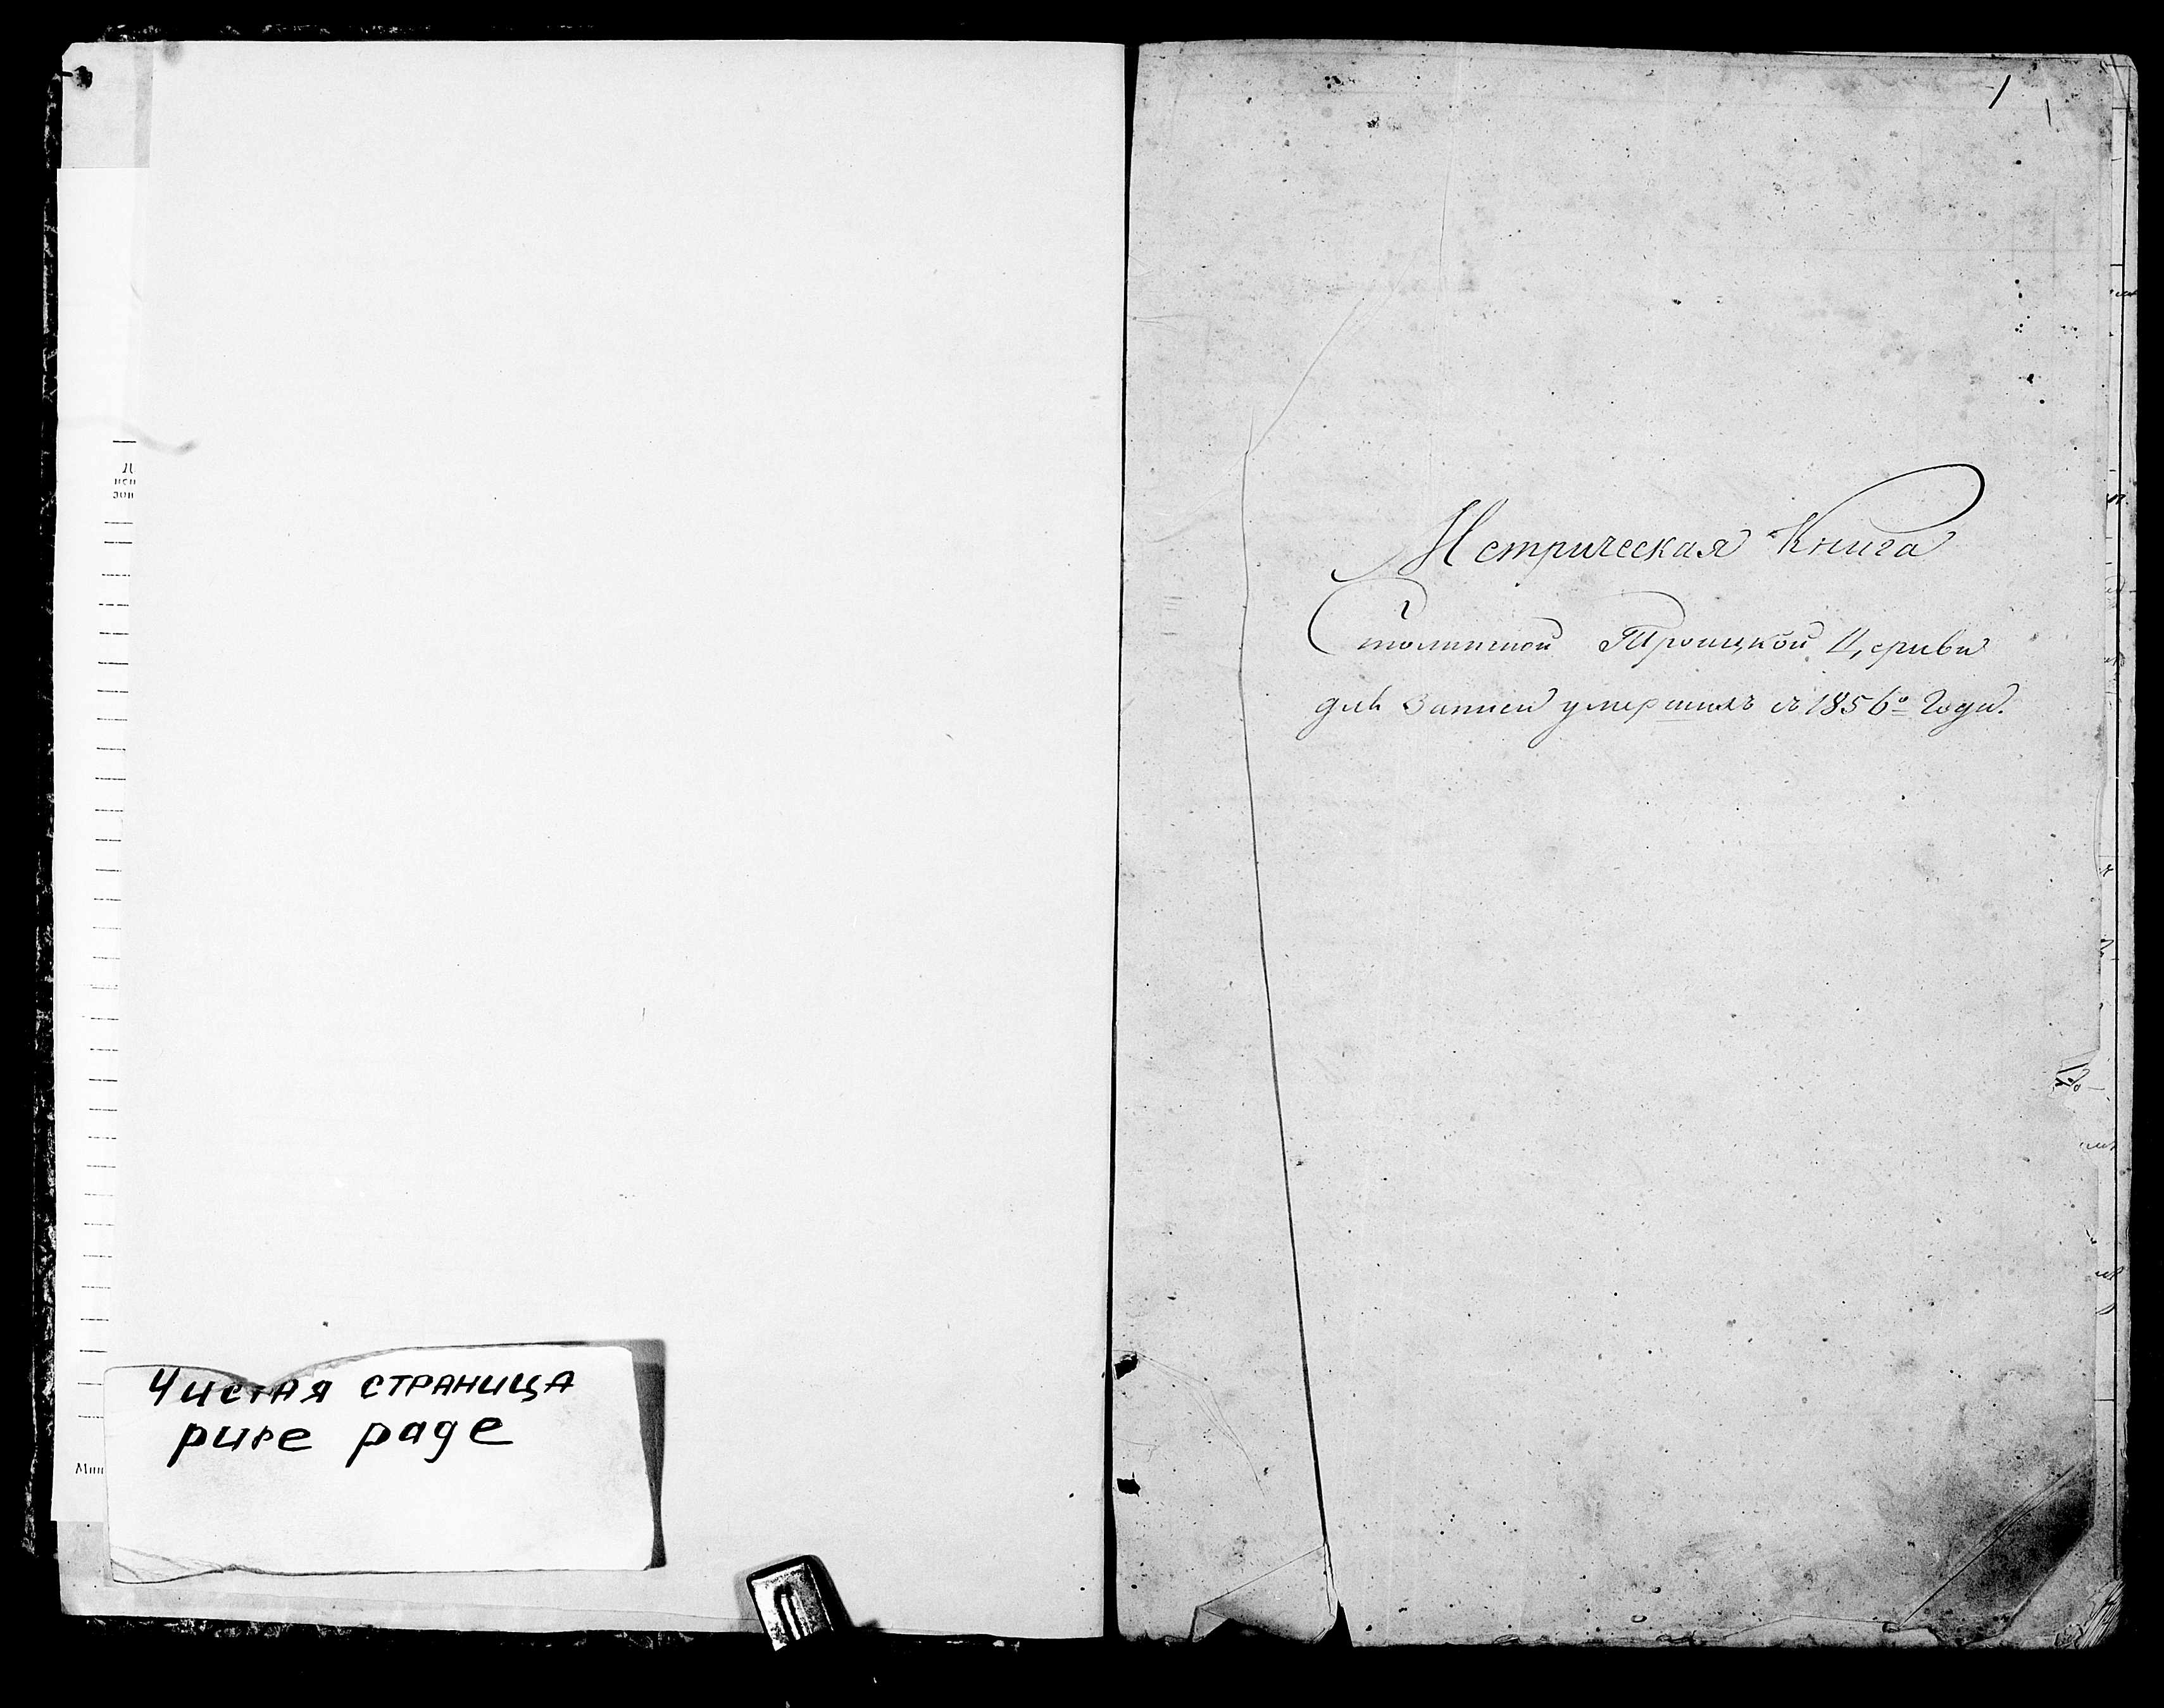 Чистая страница
pure page
1
Метрическая Книга
Столинской Троицкой Церкви
для Записи умершихъ съ 1856го Года.